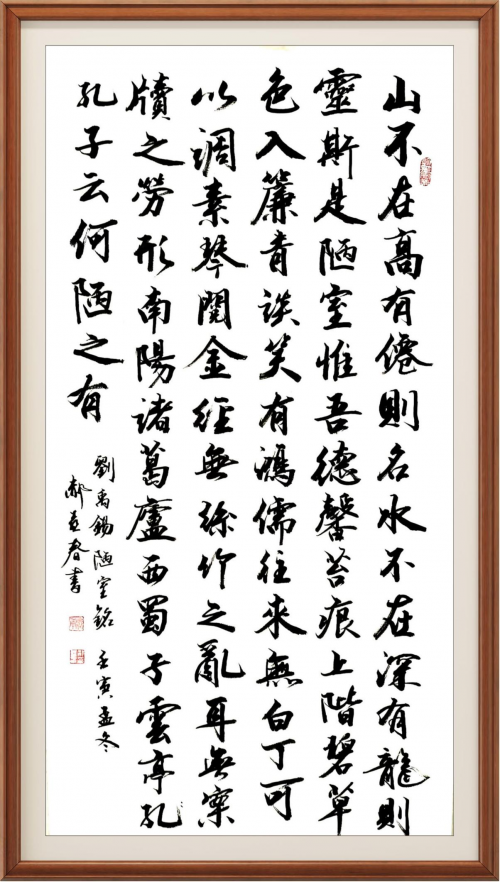 山不在高有僊則名水不在深有龍則
靈斯是陋室惟吾德馨苔痕上階碧草
色入簾青談笑有鴻儒往來無白丁可
以調素琴閱金經無絲竹之亂耳無案
牘之勞形南陽諸葛廬西蜀子雲亭孔
孔子云何陋之有
劉禹錫陋室銘 壬寅孟冬
郝春書